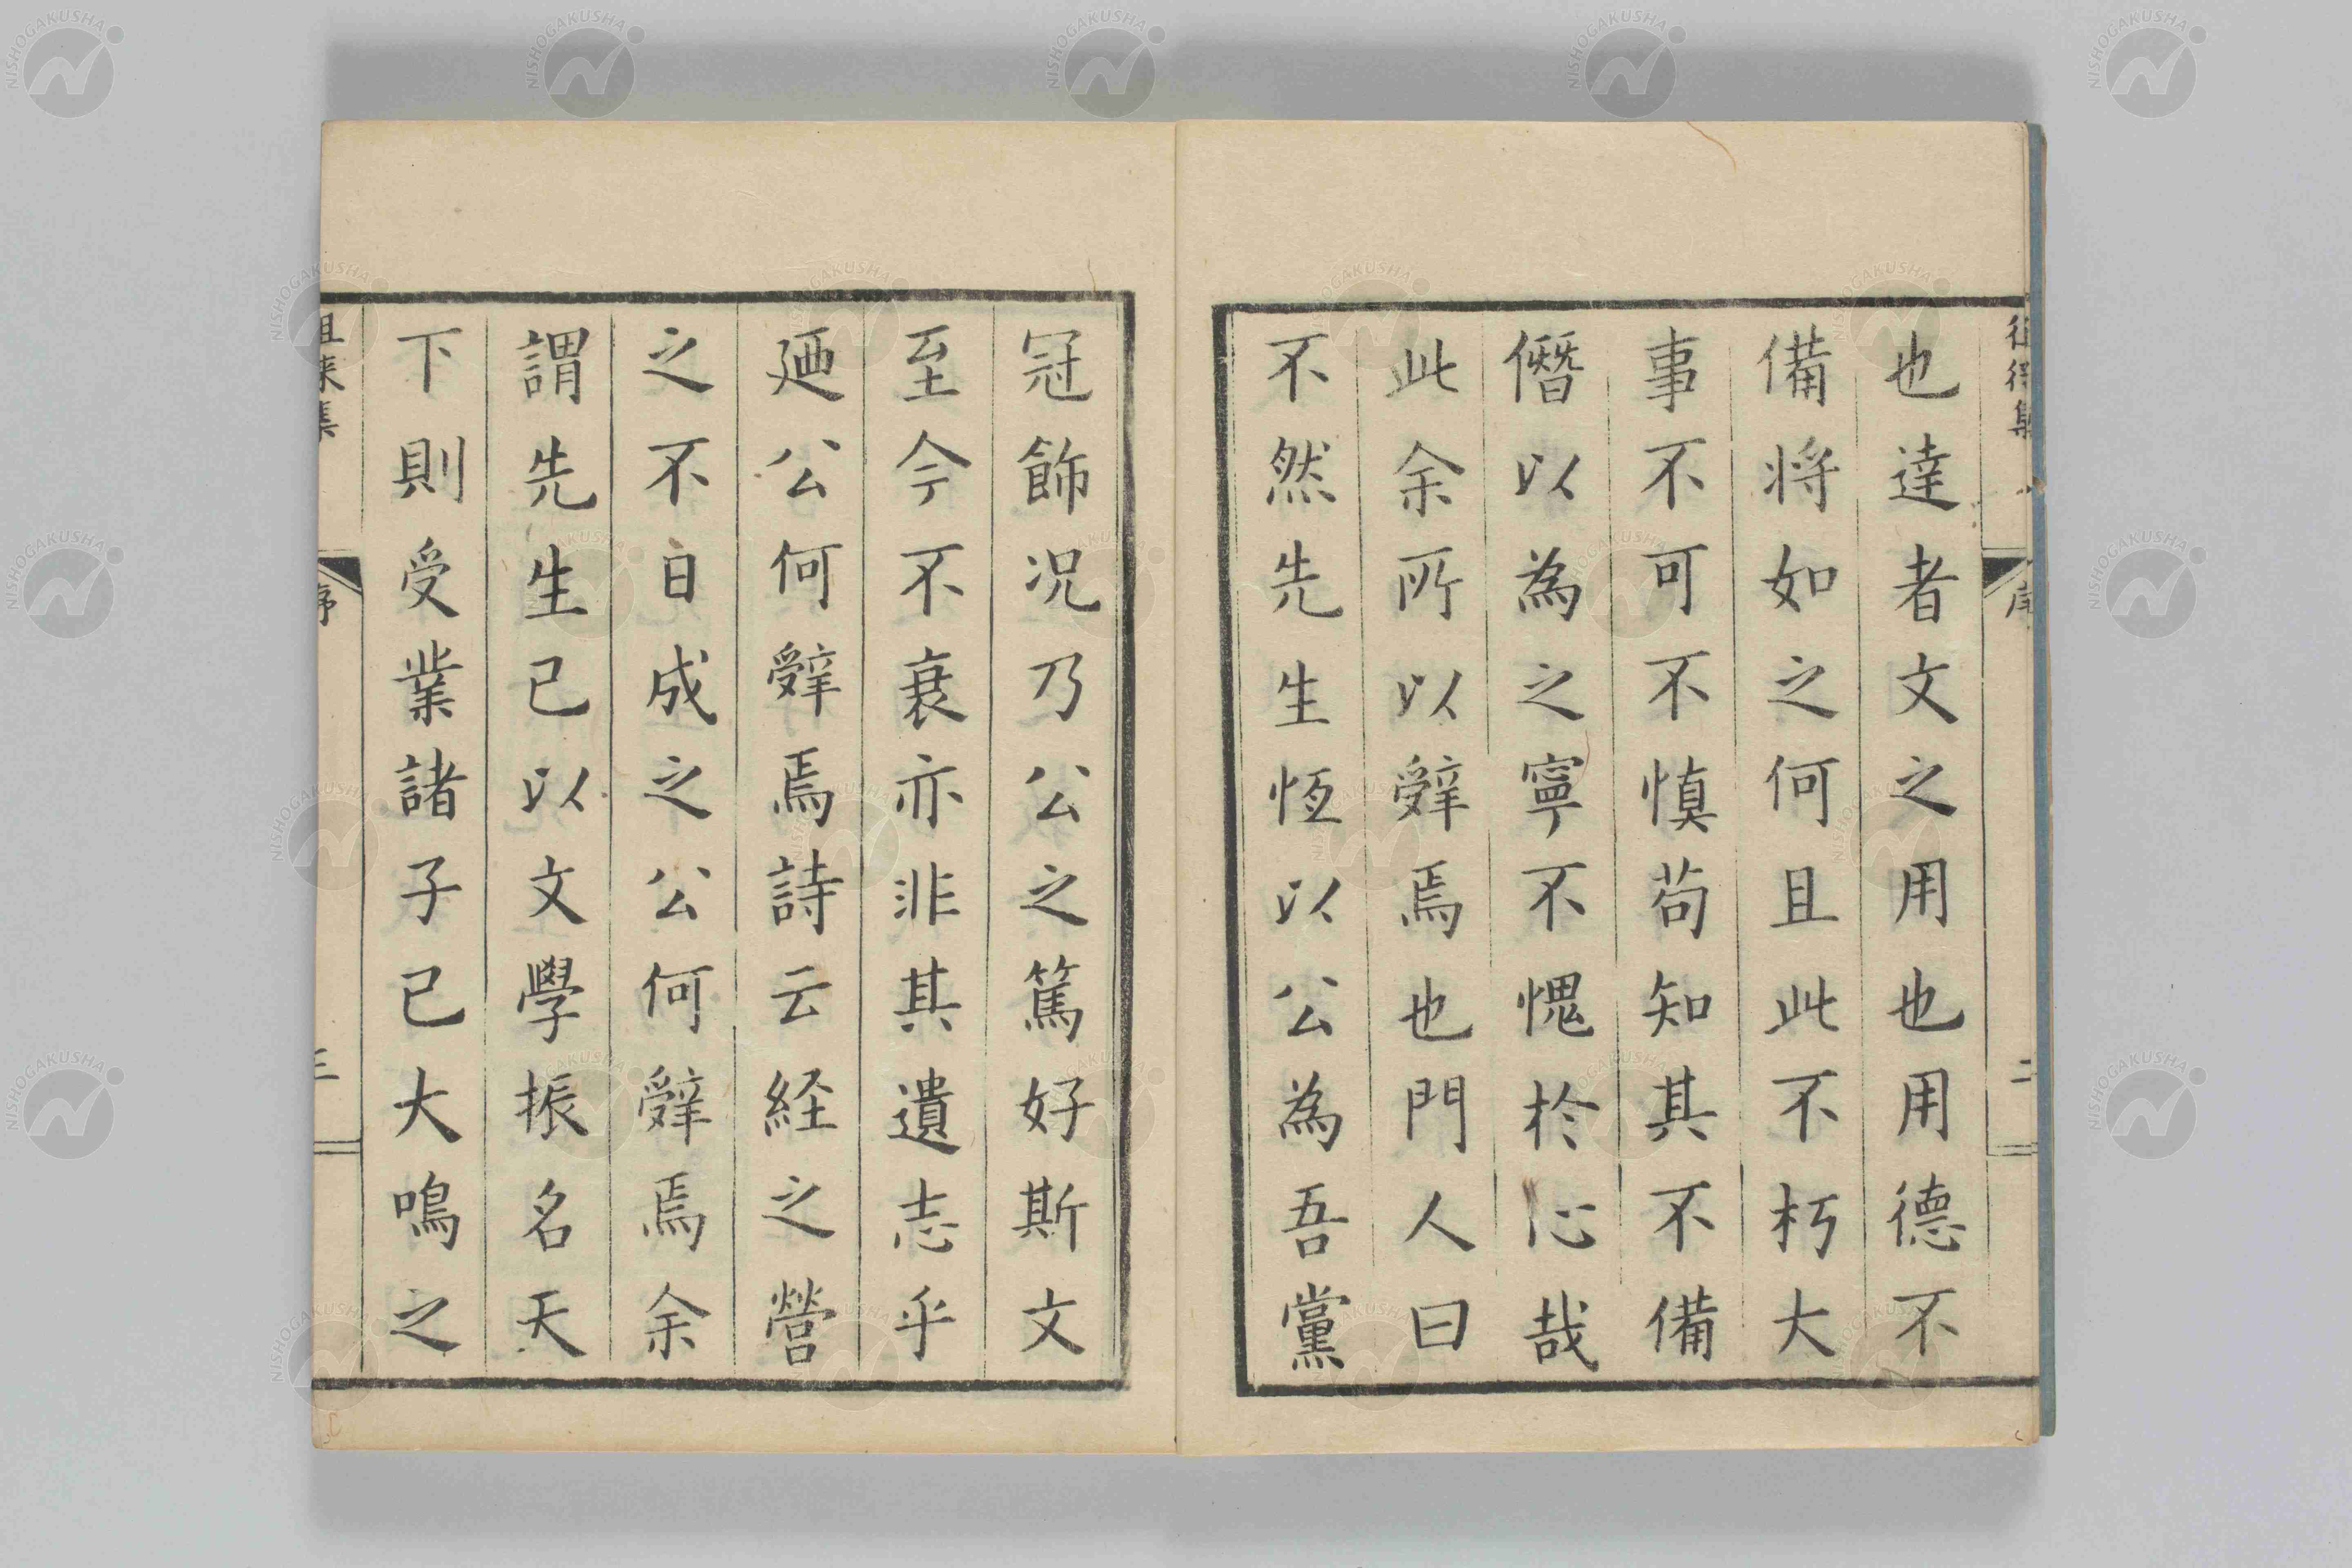 也達者文之用也用德不
備將如之何且此不朽大
事不可不慎苟知其不備
僭以為之寧不愧於心哉
此余所以辤焉也門人曰
不然先生恆以公為吾黨
冠飾況乃公之篤好斯文
至今不衰亦非其遺志乎
廼公何辤焉詩云経之營
之不日成之公何辤焉余
謂先生已以文學振名天
下則受業諸子已大鳴之
徂徠集
序
三
序
二
NISHOGAKUSHA